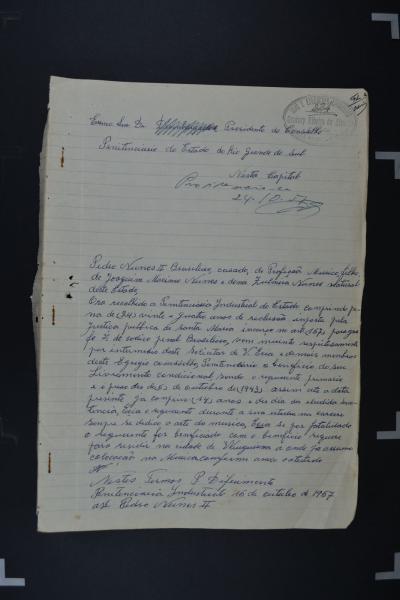 Exmo Snr Dr Presidente do Conselho
Penitenciario do Estado do Rio Grande do Sul
Nesta Capital
24-10-57
Pedro Nunes II Brasileiro, casado, de Profição Musico, filho
de Joaquim Mariano Nunes e dona Nunes natural
deste Estado,
Ora recolhido a Penitenciaria Industrial do Estado comprindo pe-
na de (24) vinte e quatro anos de reclusão imposta pela
Justiça pública de Santa Maria incurso no art. 167, paragra-
fo 2 do codigo penal Brasileiro, vem muinte respeitosamente
por entermedio deste Solicitar de V. Excia e demais membros
deste Egregio conselho Penitenciario o beneficio do seu
Livramento condicional sendo o requerente primario
e preso des de 5 de outubro de (1943) assim até a data
presente já compriu (14) anos e dis dia da aludida sen-
tencia, Excia o requerente durante a sua no carcere
sempre se dedico a arte de musico, Excia se por fatalidade
o requerente for benficado com o beneficio requere
fara residir na cidade de Uruguaiana a onde ja
colocação no Musica conforme
Nestes Termos P. Diferimento
Penitenciaria Industrial 16 de outubro de 1957
ass Pedro Nunes II